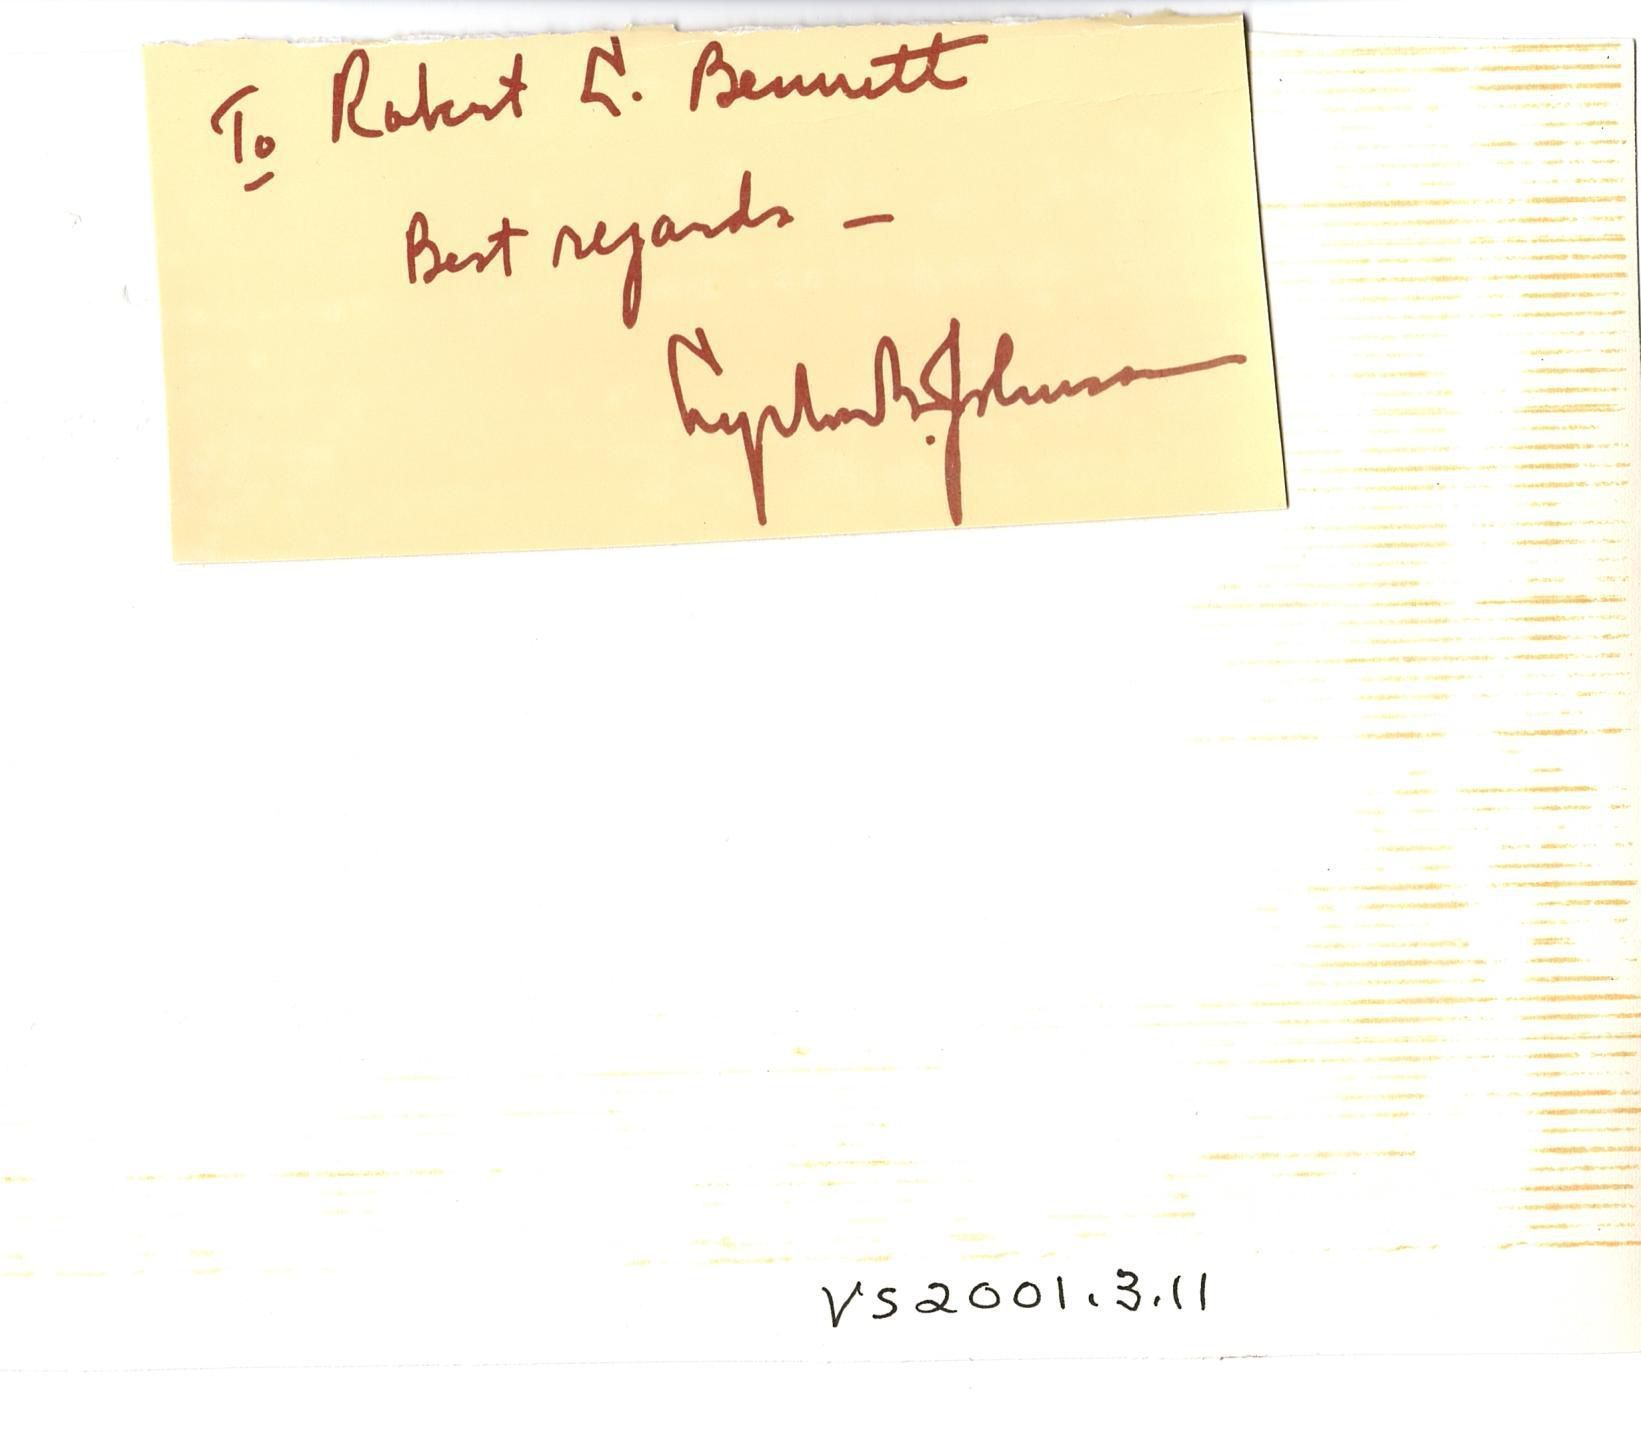 To Robert L. Bennett
Best regards —
Lyndon B. Johnson
VS2001.3.11